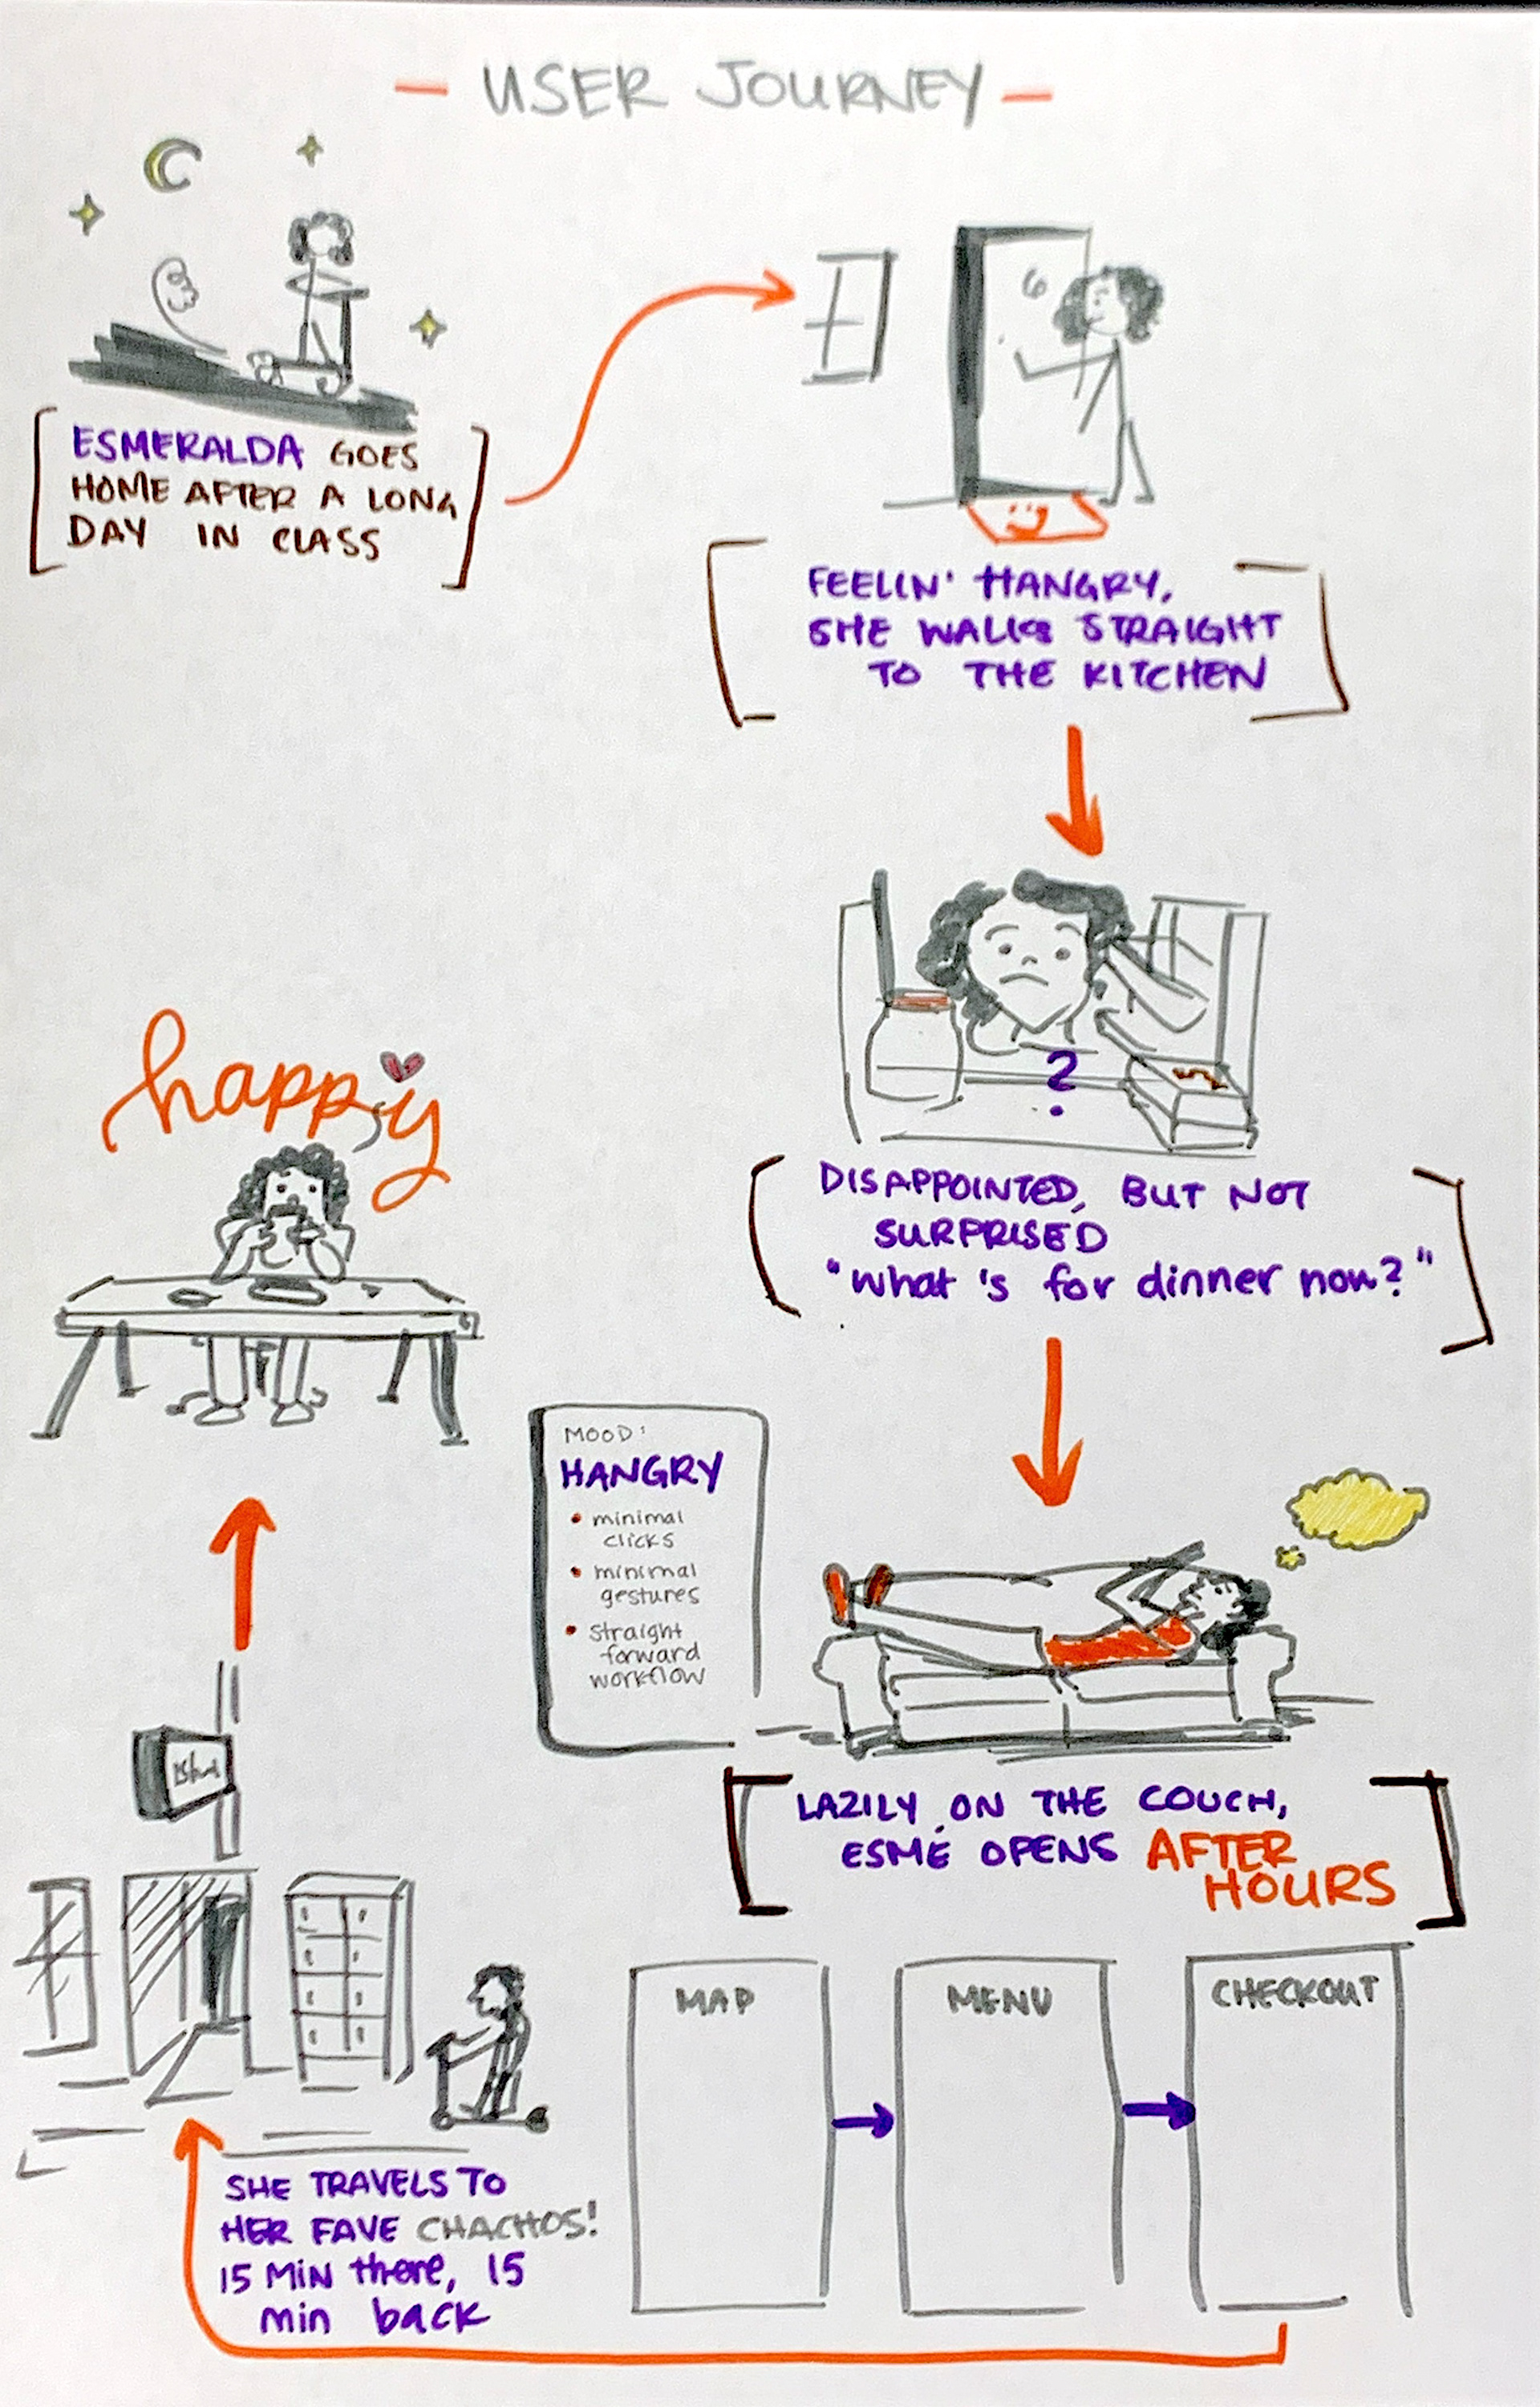 - USER JOURNEY -
ESMERALDA GOES
HOME AFTER A LONG
DAY IN CLASS
6
FEELIN' HANGRY,
SHE WALKS STRAIGHT
TO THE KITCHEN
?
DISAPPOINTED, BUT NOT
SURPRISED
"what's for dinner now?"
MOOD:
HANGRY
• minimal
clicks
• minimal
gestures
• straight
forward
workflow
LAZILY ON THE COUCH,
ESME OPENS AFTER
HOURS
MAP
MENU
CHECKOUT
SHE TRAVELS TO
HER FAVE CHACHOS!
15 MIN there, 15
min back
happy